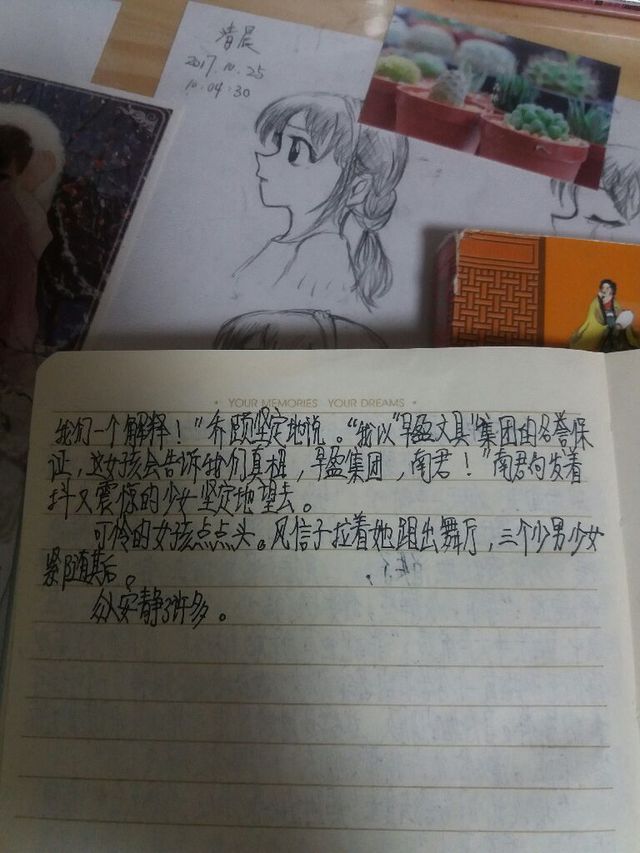 清晨
2017.10.25
10.04:30
YOUR MEMORIES YOUR DREAMS
我们一个解释！”乔颐坚定地说。“我以“早盈文具”集团由名誉保
证，这女孩会告诉我们真相，早盈集团，南君！”南君向发着
抖又震惊的少女坚定地望去。
可怜的女孩点点头。风信子拉着她跑出舞厅，三个少男少女
紧随其后。
众人安静了许多。